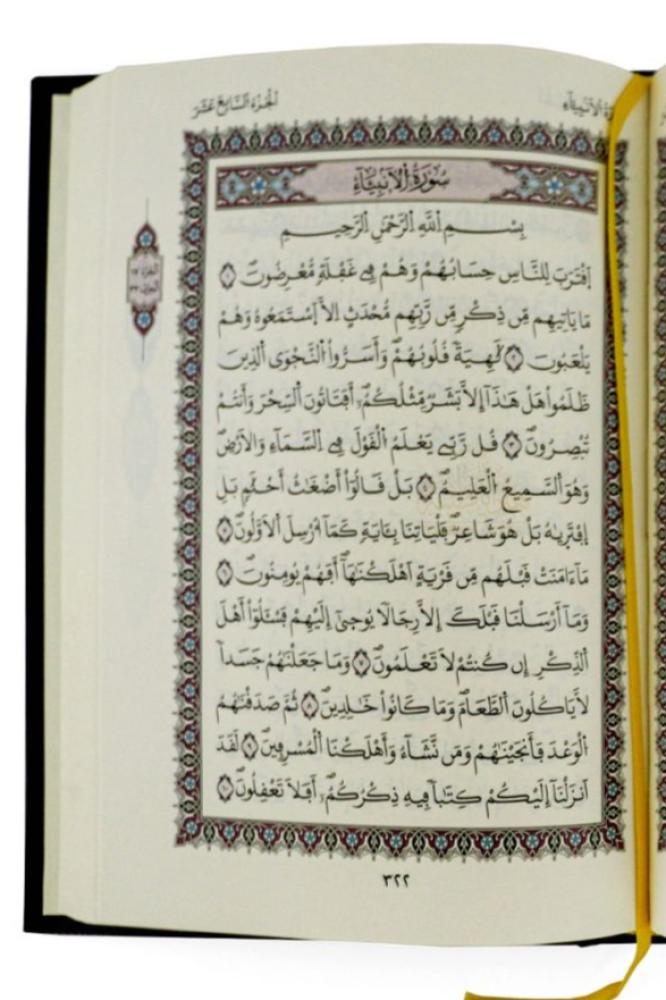 ةُ اُلَانبِيَآءِ
اُلْجُزْءُ السَّابِعَ عَشَرَ
سُورَةُ اُلَانبِيَآءِ
بِسْمِ اِللَّهِ اِلرَّحْمَٰنِ اِلرَّحِيمِ
اِقْتَرَبَ لِلنَّاسِ حِسَابُهُمْ وَهُمْ فِے غَفْلَةٖ مُّعْرِضُونَۖ ١
مَا يَاتِيهِم مِّن ذِكْرٖ مِّن رَّبِّهِم مُّحْدَثٍ اِلَّا اَسْتَمَعُوهُ وَهُمْ
يَلْعَبُونَ ٢ لَٰهِيَةٗ قُلُوبُهُمْۖ وَأَسَرُّواْ اُلنَّجْوَى اَلذِينَ
ظَلَمُواْ هَلْ هَٰذَآ إِلَّا بَشَرٞ مِّثْلُكُمُۥٓۖ أَفَتَاتُونَ اَلسِّحْرَ وَأَنتُمْ
تُبْصِرُونَۖ ٣ قُل رَّبِّے يَعْلَمُ اُلْقَوْلَ فِے اِلسَّمَآءِ وَالَارْضِۖ
وَهُوَ اَلسَّمِيعُ اُلْعَلِيمُۖ ٤ بَلْ قَالُوٓاْ أَضْغَٰثُ أَحْلَٰمِۢ بَلِ
اِفْتَر۪يٰهُ بَلْ هُوَ شَاعِرٞۖ فَلْيَاتِنَا بِـَٔايَةٖ كَمَآ أُرْسِلَ اَلَاوَّلُونَۖ ٥
مَآ ءَامَنَتْ قَبْلَهُم مِّن قَرْيَةٍ اَهْلَكْنَٰهَآۖ أَفَهُمْ يُومِنُونَۖ ٦
وَمَآ أَرْسَلْنَا قَبْلَكَ إِلَّا رِجَالٗا يُوح۪ىٰٓ إِلَيْهِمْ فَسْـَٔلُوٓاْ أَهْلَ
اَلذِّكْرِ إِن كُنتُمْ لَا تَعْلَمُونَۖ ٧ وَمَا جَعَلْنَٰهُمْ جَسَداٗ
لَّا يَاكُلُونَ اَلطَّعَامَۖ وَمَا كَانُواْ خَٰلِدِينَۖ ٨ ثُمَّ صَدَقْنَٰهُمُ
اُلْوَعْدَ فَأَنجَيْنَٰهُمْ وَمَن نَّشَآءُ وَأَهْلَكْنَا اَلْمُسْرِفِينَۖ ٩ لَقَدَ
اَنزَلْنَآ إِلَيْكُمْ كِتَٰباٗ فِيهِ ذِكْرُكُمُۥٓۖ أَفَلَا تَعْقِلُونَۖ ١٠
٣٢٢